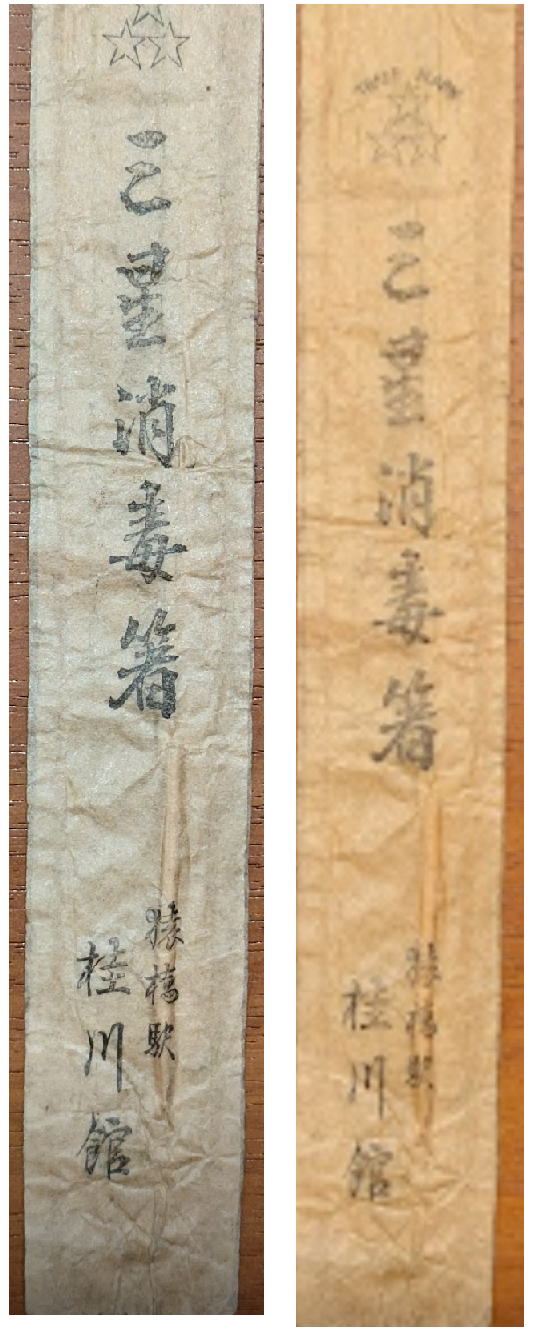 三星消毒箸
猿橋駅
桂川館
MARK
三星消毒箸
猿橋駅
桂川館